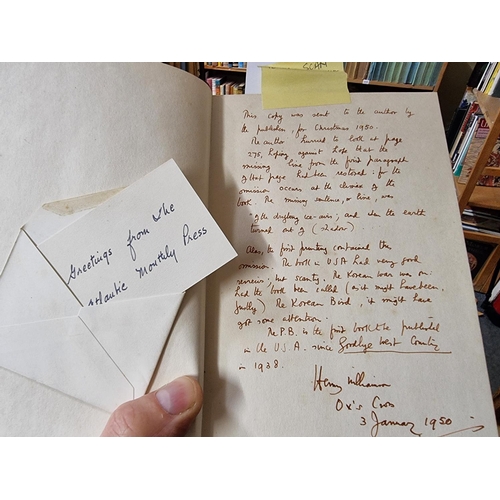 SCAM
Greetings from the
Atlantic Monthly Press
This copy was sent to the author by
the publisher, for Christmas 1950.
The author hurried to look at page
275, hoping against hope that the
missing line from the first paragraph
of that page had been restored: for the
omission occurs at the climax of the
book. The missing sentence, or line, was
"of the drifting ice-airs; and when the earth
turned out of (shadow)
Alas, the first printing continued the
omission. The book in USA had very good
reviews: but scanty. The Korean war was on:
had the book been called (as it might have been,
justly) The Korean Bird, it might have
got some attention.
The P.B. is the first book to be published
in the U.S.A. since Goodbye West Country
in 1938.
Henry Williamson
Ox's Cross
3 January, 1950